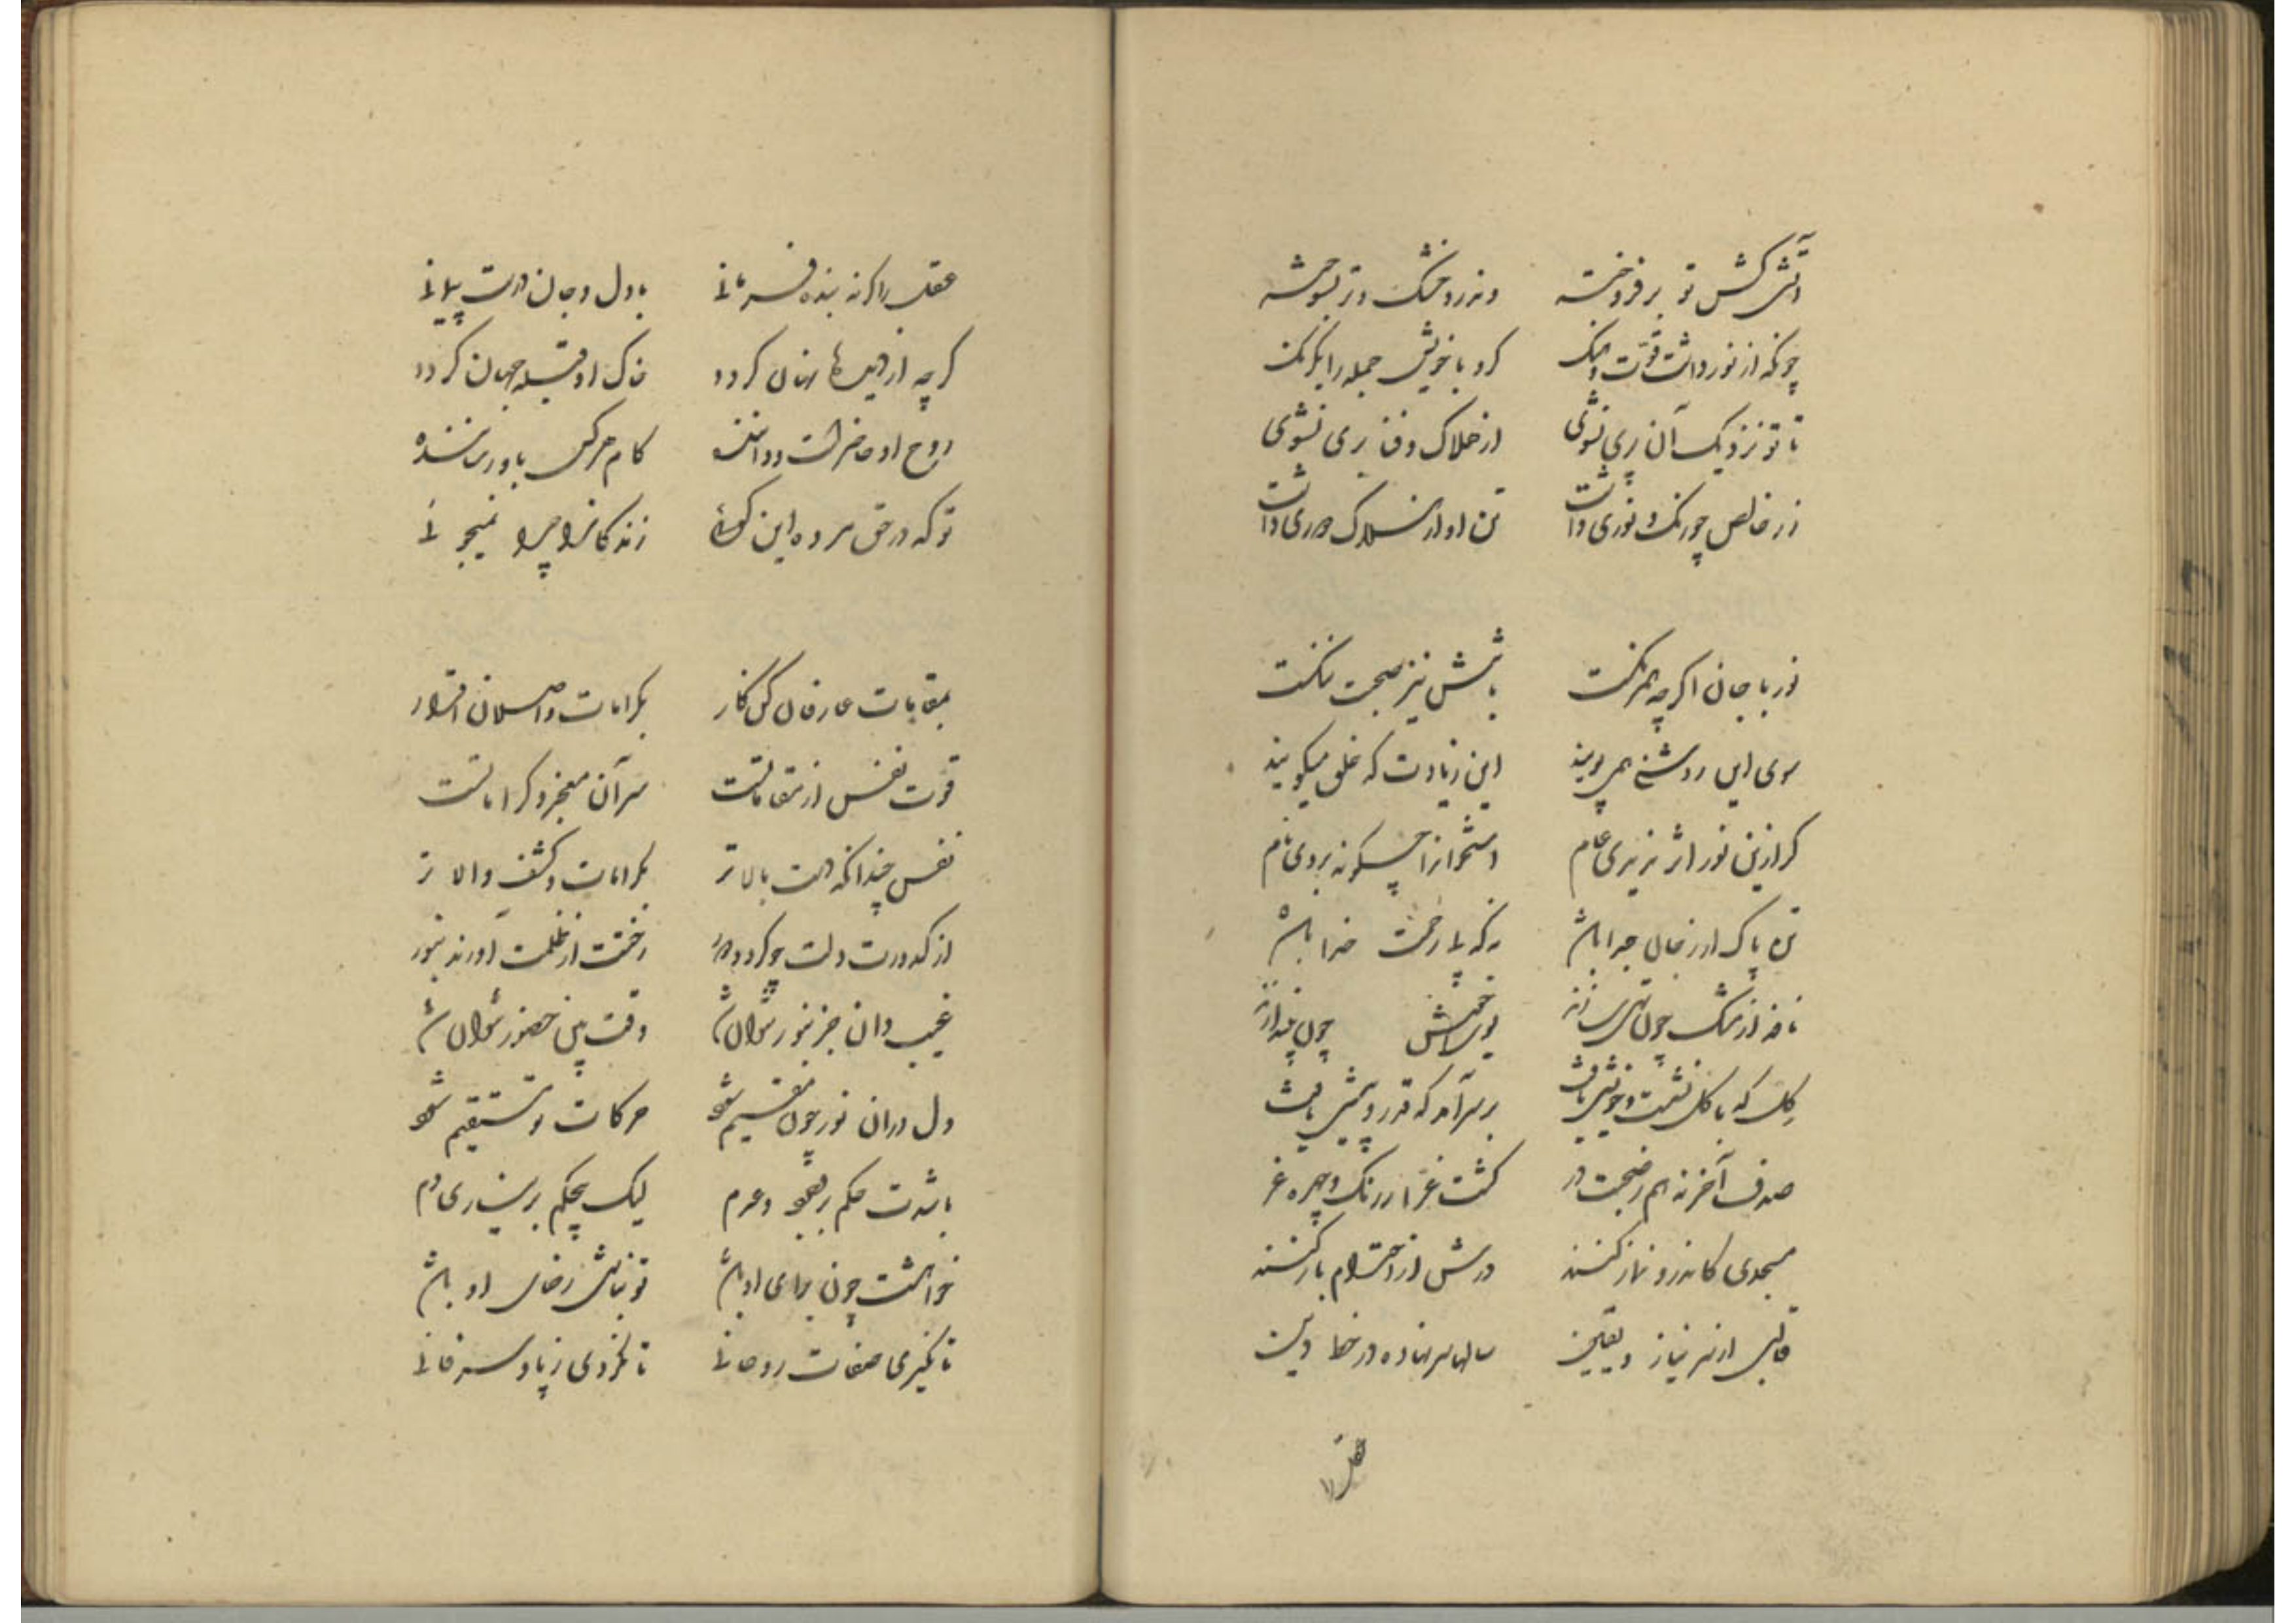 آتشی کش تو بر فروخته وندرو خشک و تر بسوخته
چونکه از نور داشت قوت و هنگ کرد با خویش جمله را یکرنگ
تا تو نزدیک آن پری نشوی از هلاک و فنا بری نشوی
زر خالص چو رنگ و نوری داشت تن او از هلاک دوری داشت
نور با جان اگرچه همرنگست با تنش نیز صحبت تنگست
سوی این روشنی همی پویند این زیادت که خلق میگویند
گر ازین نور اثر نبردی عام استخوانرا چگونه بردی نام
تن پاک ار ز جان جدا باشد نه که بی رحمت خدا باشد
نافه از مشک چون تهی سازند بوی خوش چون
گل که با گل نشست و خویشی یافت بر سر آمد که قدر و پیشی یافت
صدف آخر نه هم ز صحبت در گشت غرا به رنگ و چهره غر
مسجدی کاندرو نماز کنند درش از احترام باز کنند
قالبی از سر نیاز و یقین سالها سر نهاده در خط دین
عقل را کرده بنده فرمانی با دل و جان درست پیمانی
گرچه از دیدها نهان گردد خاک او قبله جهان گردد
روح او حاضرست و داننده کام هر کس باو رساننده
تو که در حق مرده این گوئی زندگانرا چرا نمیجوئی
بمقامات عارفان کن کار بکرامات واصلان اقرار
قوت نفس از مقاماتست سر آن معجز و کراماتست
نفس چندانکه هست بالاتر بکرامات و کشف والاتر
از کدورت دلت چو گردد دور رختت از ظلمت آورند بنور
غیب دان جز بنور نتوان شد وقت بین حضور نتوان شد
دل در آن نور چون مقیم شود حرکات تو مستقیم شود
باشدت حکم بر وجود و عدم لیک بیحکم بر نیاری دم
خواهشت چون برای او باشد تو نباشی رضای او باشد
تا نگیری صفات روحانی تا نگردی ز یاد سر فانی
نفس را